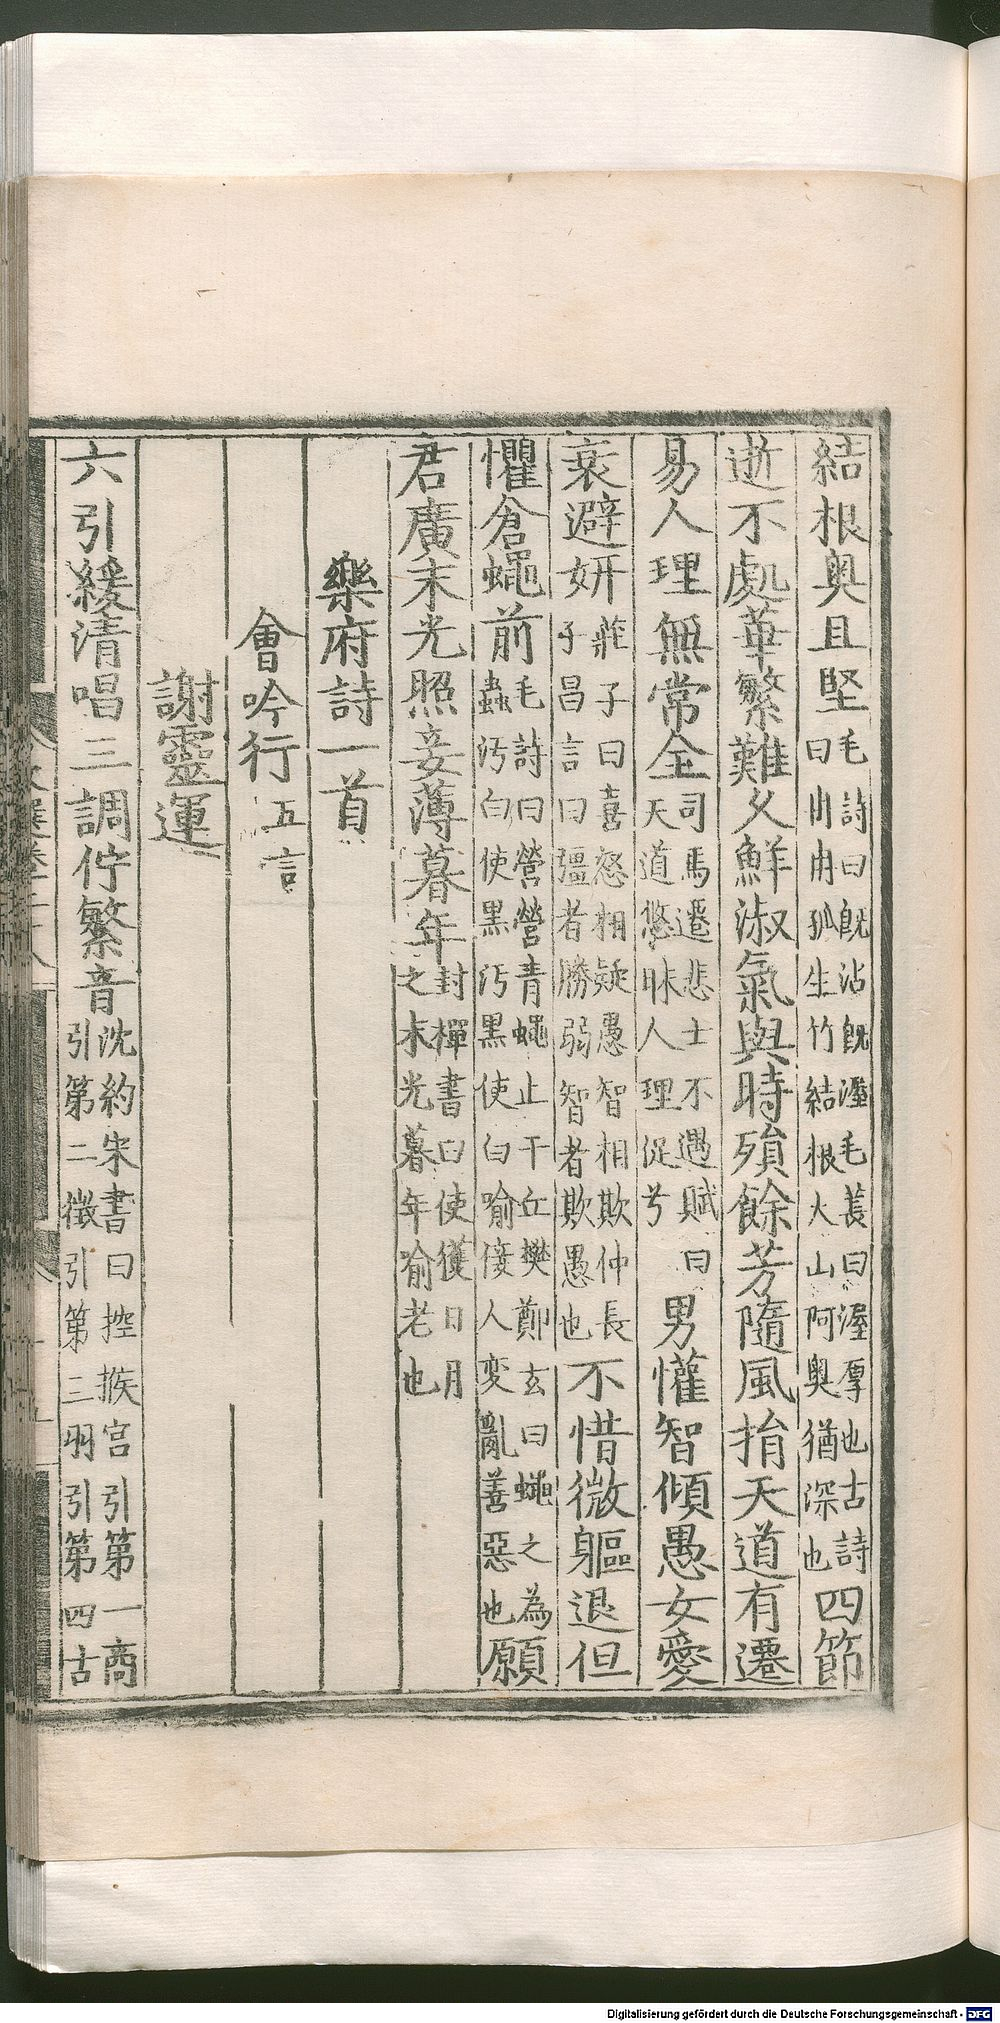 結根奥且堅毛詩曰旣沾旣渥毛萇曰渥厚也古詩曰冉冉孤生竹結根大山阿奥猶深也四節
逝不處華繁難久鮮淑氣與時殞餘芳隨風捐天道有遷
易人理無常全司馬遷悲士不遇賦曰天道悠昧人理促兮男懽智傾愚女愛
衰避妍莊子曰喜怒相疑愚智相欺仲長子昌言曰彊者勝弱智者欺愚也不惜微軀退但
懼倉蠅前毛詩曰營營青蠅止于丘樊鄭玄曰蠅之為蟲汚白使黑汚黑使白喻佞人変亂善惡也願
君廣末光照妾薄暮年封禪書曰使獲日月之末光暮年喻老也
樂府詩一首
會吟行五言
謝靈運
六引緩清唱三調佇繁音沈約宋書曰控㨭宮引第一商引第二徵引第三羽引第四古
Digitalisierung gefördert durch die Deutsche Forschungsgemeinschaft - DFG